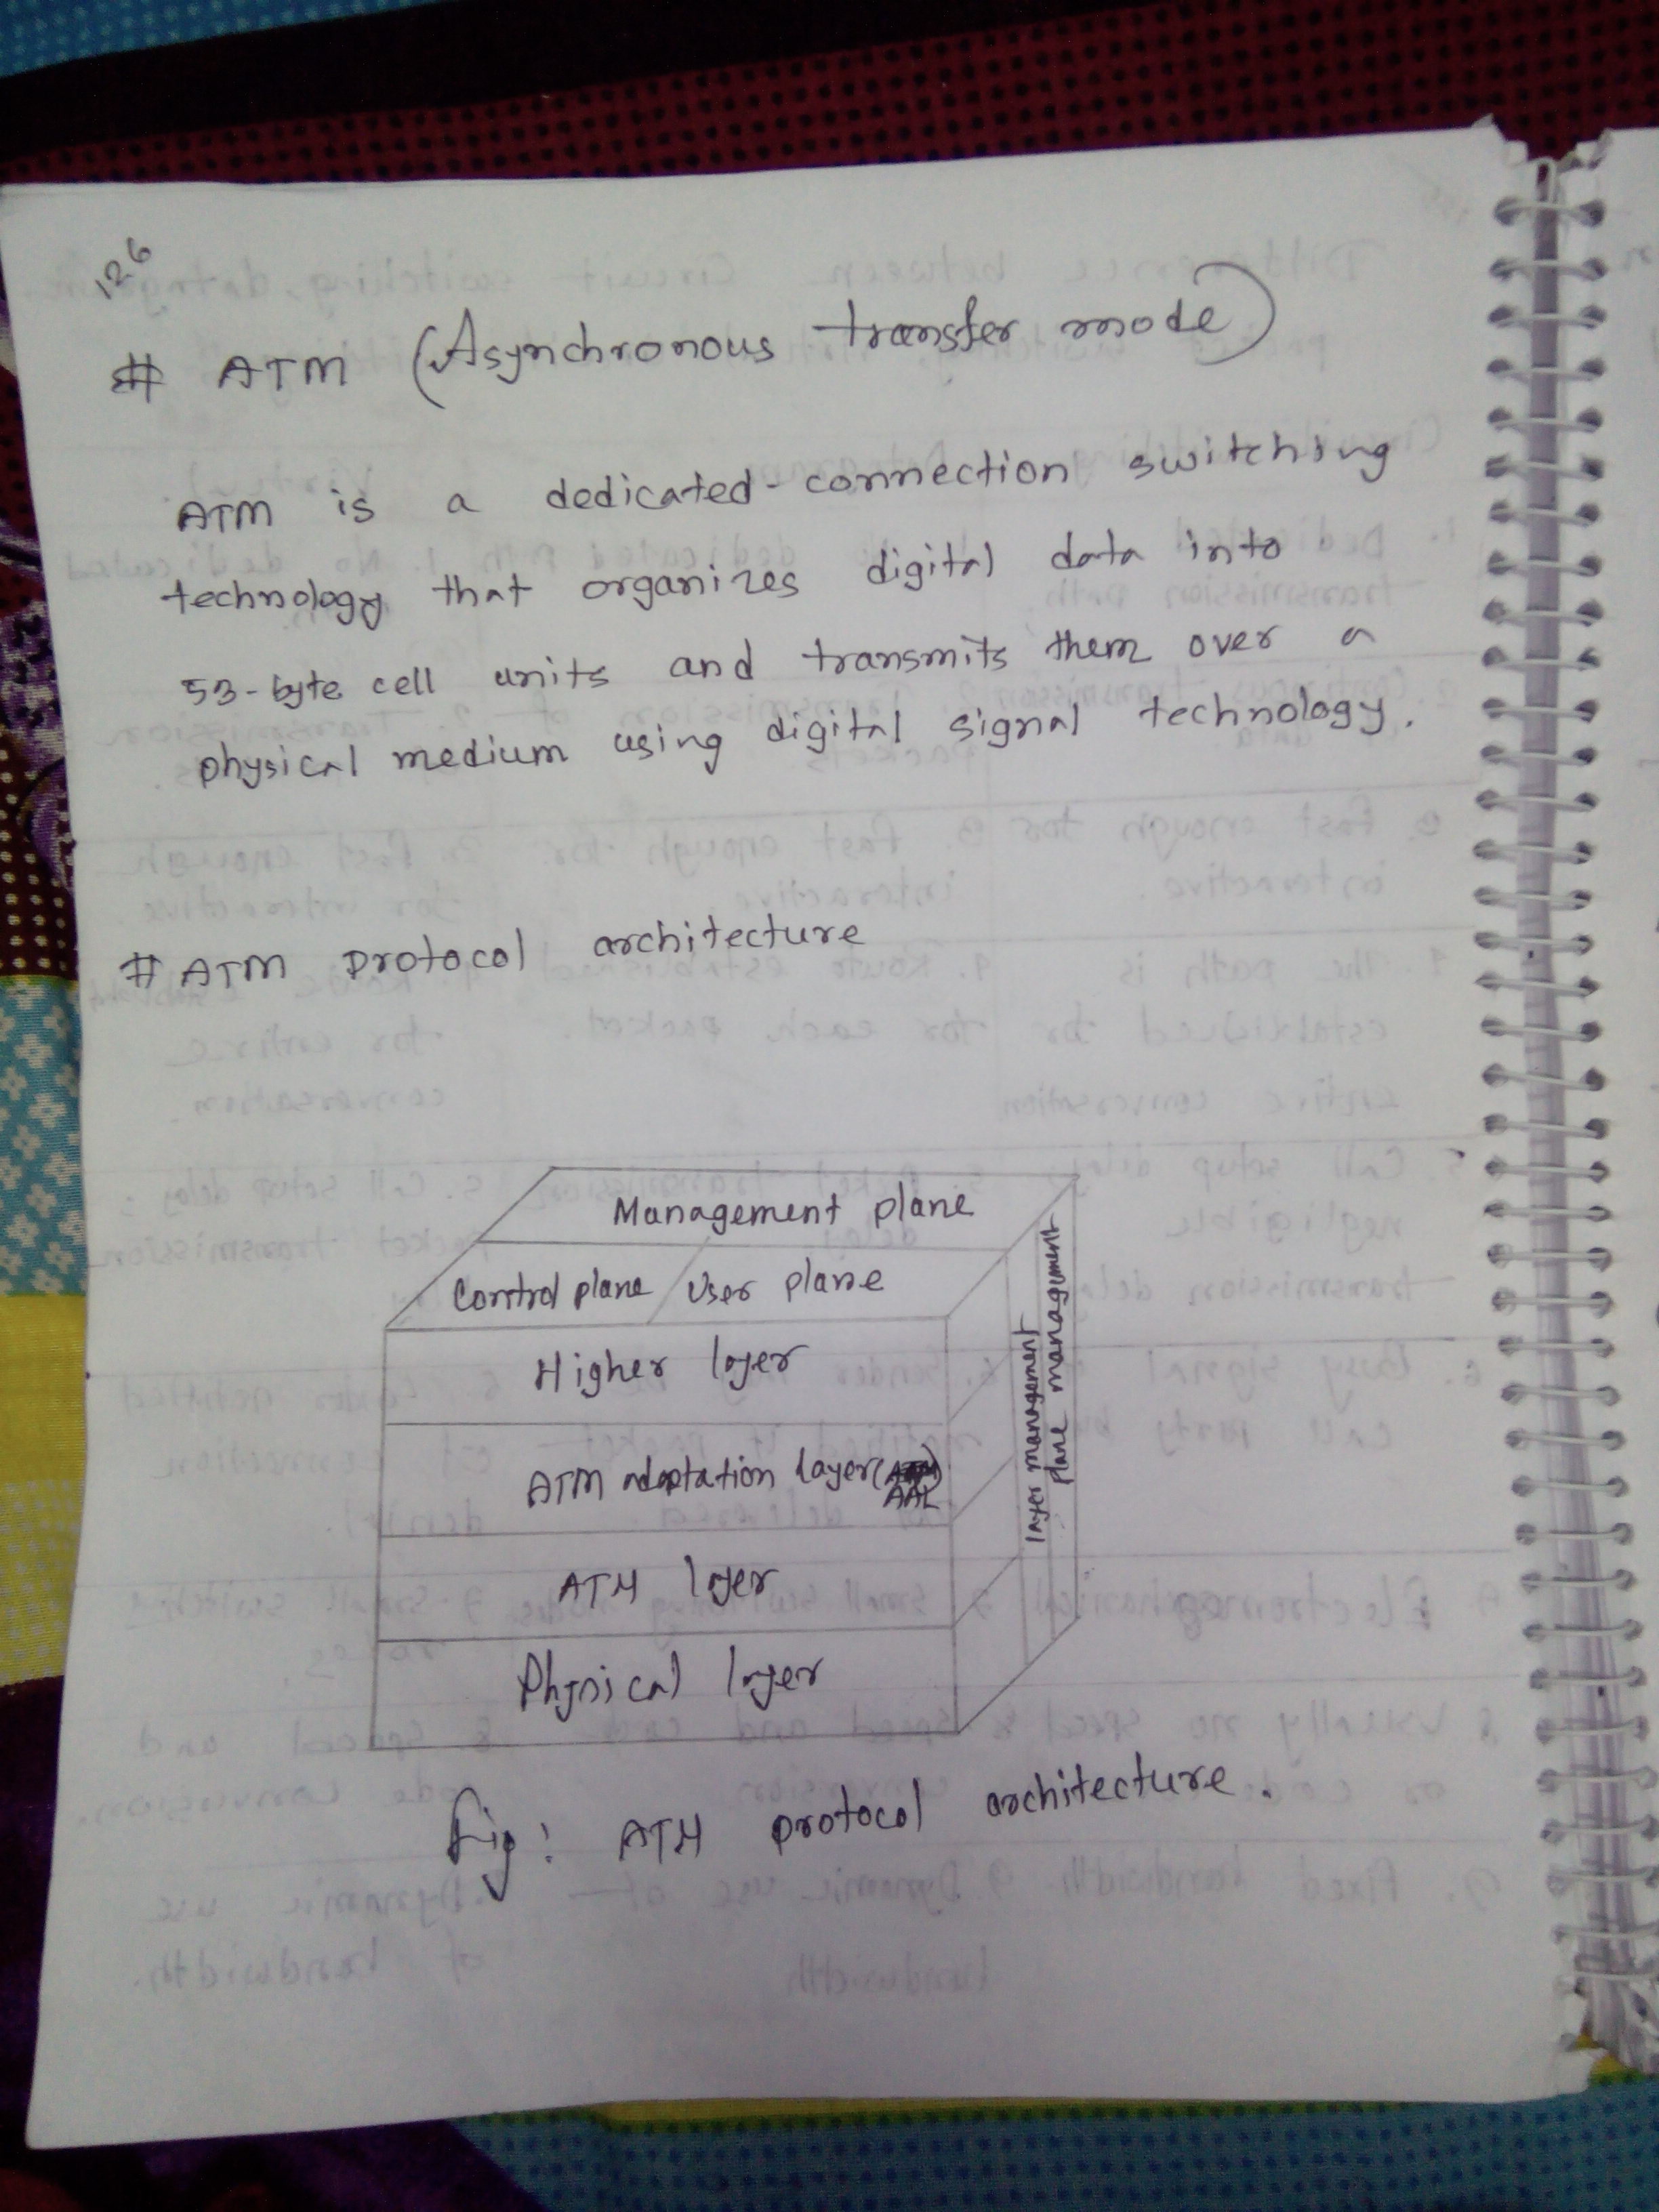 126
# ATM (Asynchronous transfer mode)
ATM is a dedicated-connection switching
technology that organizes digital data into
53-byte cell units and transmits them over a
physical medium using digital signal technology.
# ATM protocol architecture
Management plane
Control plane / User plane
Higher layer
ATM adaptation layer (
AAL
ATM layer
Physical layer
layer management
plane management
Fig: ATM protocol architecture.